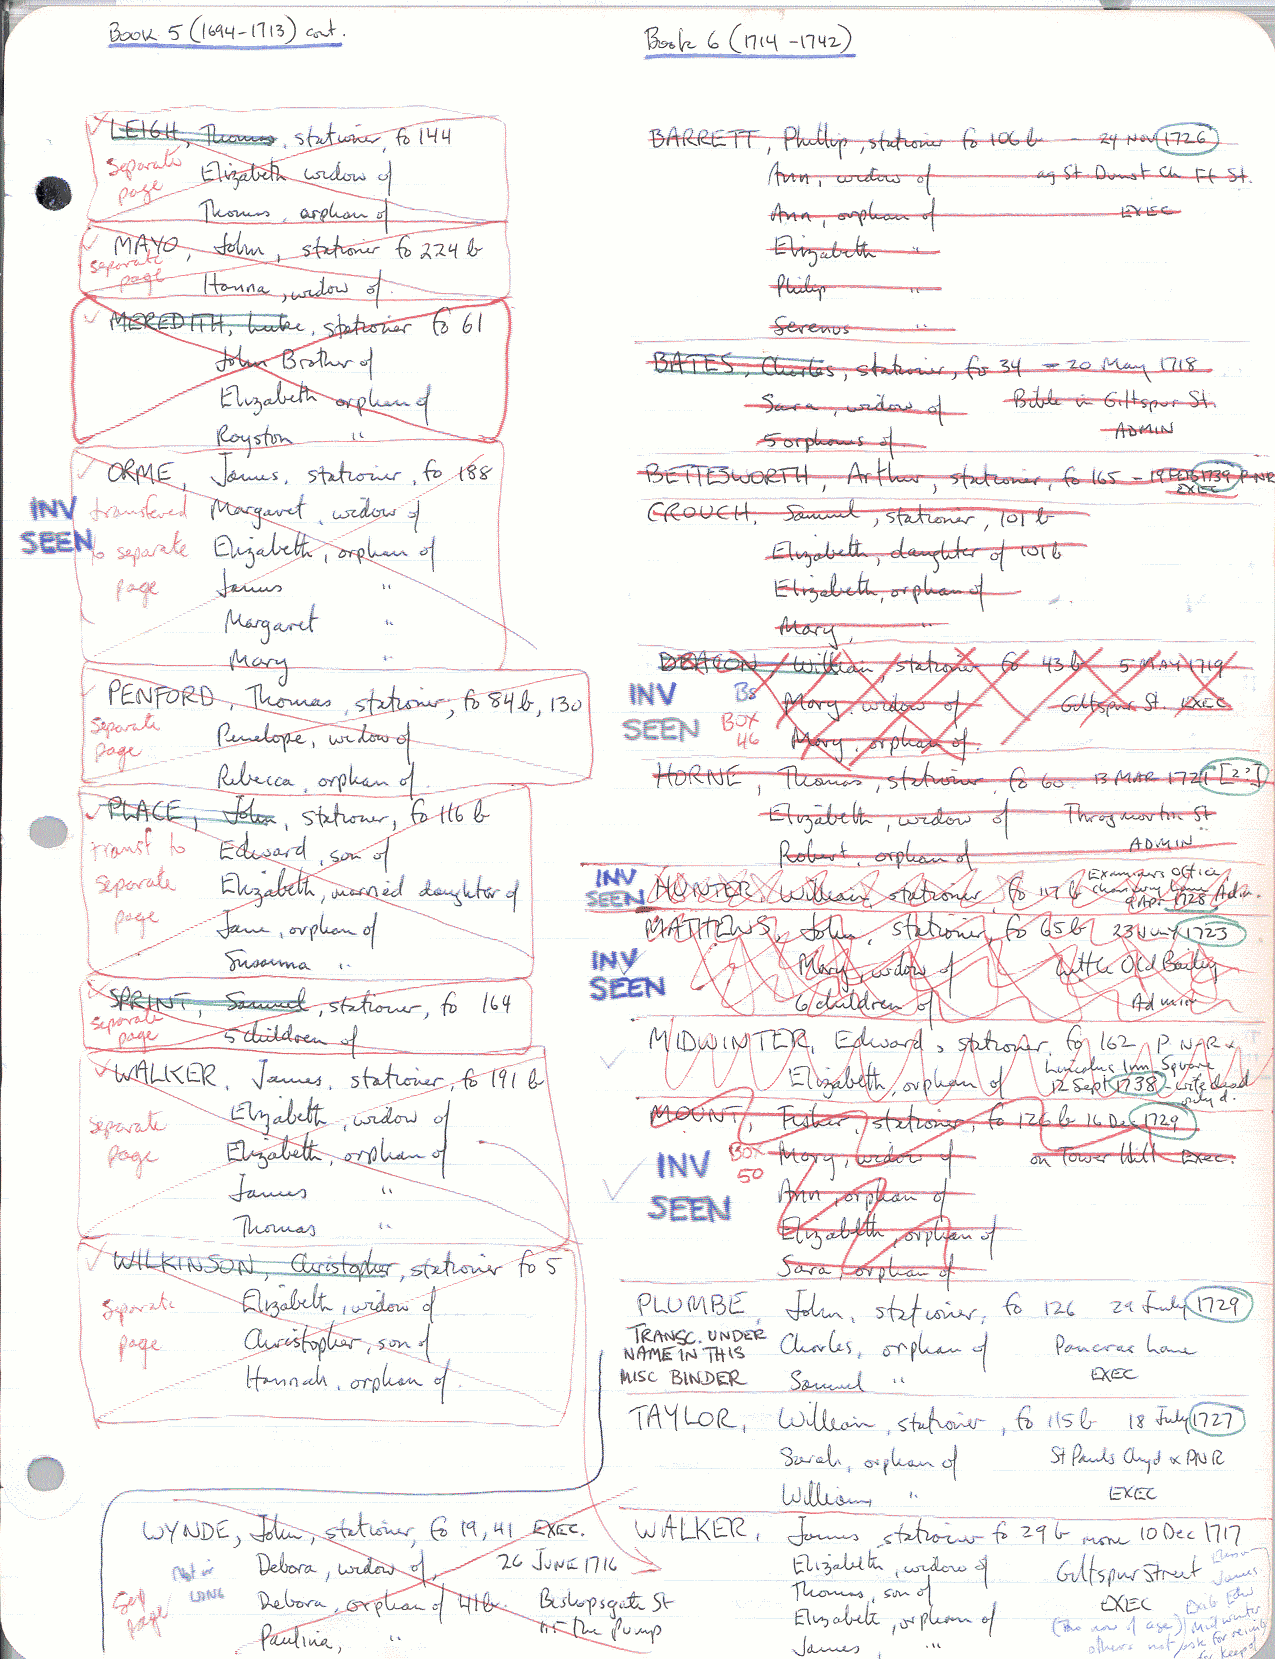 Book 5 (1694-1713) cont.
LEIGH, Thomas, stationer, fo 144
Separate page
Elizabeth widow of
Thomas, orphan of
MAYO, John, stationer fo 224 b
Separate page
Hanna, widow of
MEREDITH, Luke, stationer fo 61
John Brother of
Elizabeth orphan of
Royston "
ORME, James, stationer, fo 188
INV SEEN
transfered to separate page
Margaret, widow of
Elizabeth, orphan of
James "
Margaret "
Mary "
PENFORD, Thomas, stationer, fo 84b, 130
Separate page
Penelope, widow of
Rebecca, orphan of
PLACE, John, stationer, fo 116 b
transf to separate page
Edward, son of
Elizabeth, married daughter of
Jane, orphan of
Susanna "
SPRINT, Samuel, stationer, fo 164
Separate page
5 children of
WALKER, James, stationer, fo 191 b
Separate page
Elizabeth, widow of
Elizabeth, orphan of
James "
Thomas "
WILKINSON, Christopher, stationer fo 5
Separate page
Elizabeth, widow of
Christopher, son of
Hannah, orphan of
WYNDE, John, stationer, fo 19, 41 EXEC.
Not in LONG
Sep page
Debora, widow of, 26 JUNE 1716
Debora, orphan of 41b. Bishopsgate St
Paulina, " at the Pump
Book 6 (1714-1742)
BARRETT, Phillip, stationer fo 106 b - 24 Nov 1726
Ann, widow of ag St Dunst Ch Ft St.
Ann, orphan of EXEC
Elizabeth "
Philip "
Serenus "
BATES, Charles, stationer, fo 34 - 20 May 1718
Sara, widow of Bible in Giltspur St.
5 orphans of ADMIN
BETTESWORTH, Arthur, stationer, fo 165 - 19 FEB 1739 P NR
EXEC
CROUCH, Samuel, stationer, 101 b
Elizabeth, daughter of 101b
Elizabeth, orphan of
Mary, "
DEACON, William, stationer fo 43 b 5 MAY 1719
INV SEEN
B8
BOX 46
Mary, widow of Giltspur St. EXEC
Mary, orphan of.
HORNE, Thomas, stationer, fo 60 13 MAR 1721 [2?]
Elizabeth, widow of Throgmorton St
Robert, orphan of ADMIN
INV SEEN
HUNTER, William, stationer, fo 117 b Examiners Office
chancery lane
9 Apr. 1728 Adm.
MATHEWS, John, stationer, fo 65b 23 July 1723
INV SEEN
Mary, widow of Little Old Bailey
6 children of Admin
MIDWINTER, Edward, stationer, fo 162 P NAR
Lincolns Inn Square
Elizabeth, orphan of 12 Sept 1738 - wife dead
only d.
MOUNT, Fisher, stationer, fo 126 b 16 Dec 1729
INV SEEN
BOX 50
Mary, widow of on Tower Hill Exec.
Ann, orphan of
Elizabeth, orphan of
Sara, orphan of
PLUMBE, John, stationer, fo 126 29 July 1729
TRANSC. UNDER NAME IN THIS MISC BINDER
Charles, orphan of Pancras Lane
Samuel " EXEC
TAYLOR, William, stationer, fo 115 b 18 July 1727
Sarah, orphan of St Pauls Chyd x PNR
William, " EXEC
WALKER, James stationer fo 29 b 10 Dec 1717
Elizabeth, widow of Giltspur Street
Thomas, son of EXEC
Elizabeth, orphan of (Tho now of age)
James, " others not
James
Midwinter
ask for
for keep of